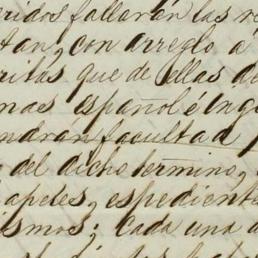 eridos fallarán las re
tan, con arreglo a
critas que de ellas de
omas español é ingl
endrán facultad p
del dicho termino,
apeles, espediente
ismos; Cada una d